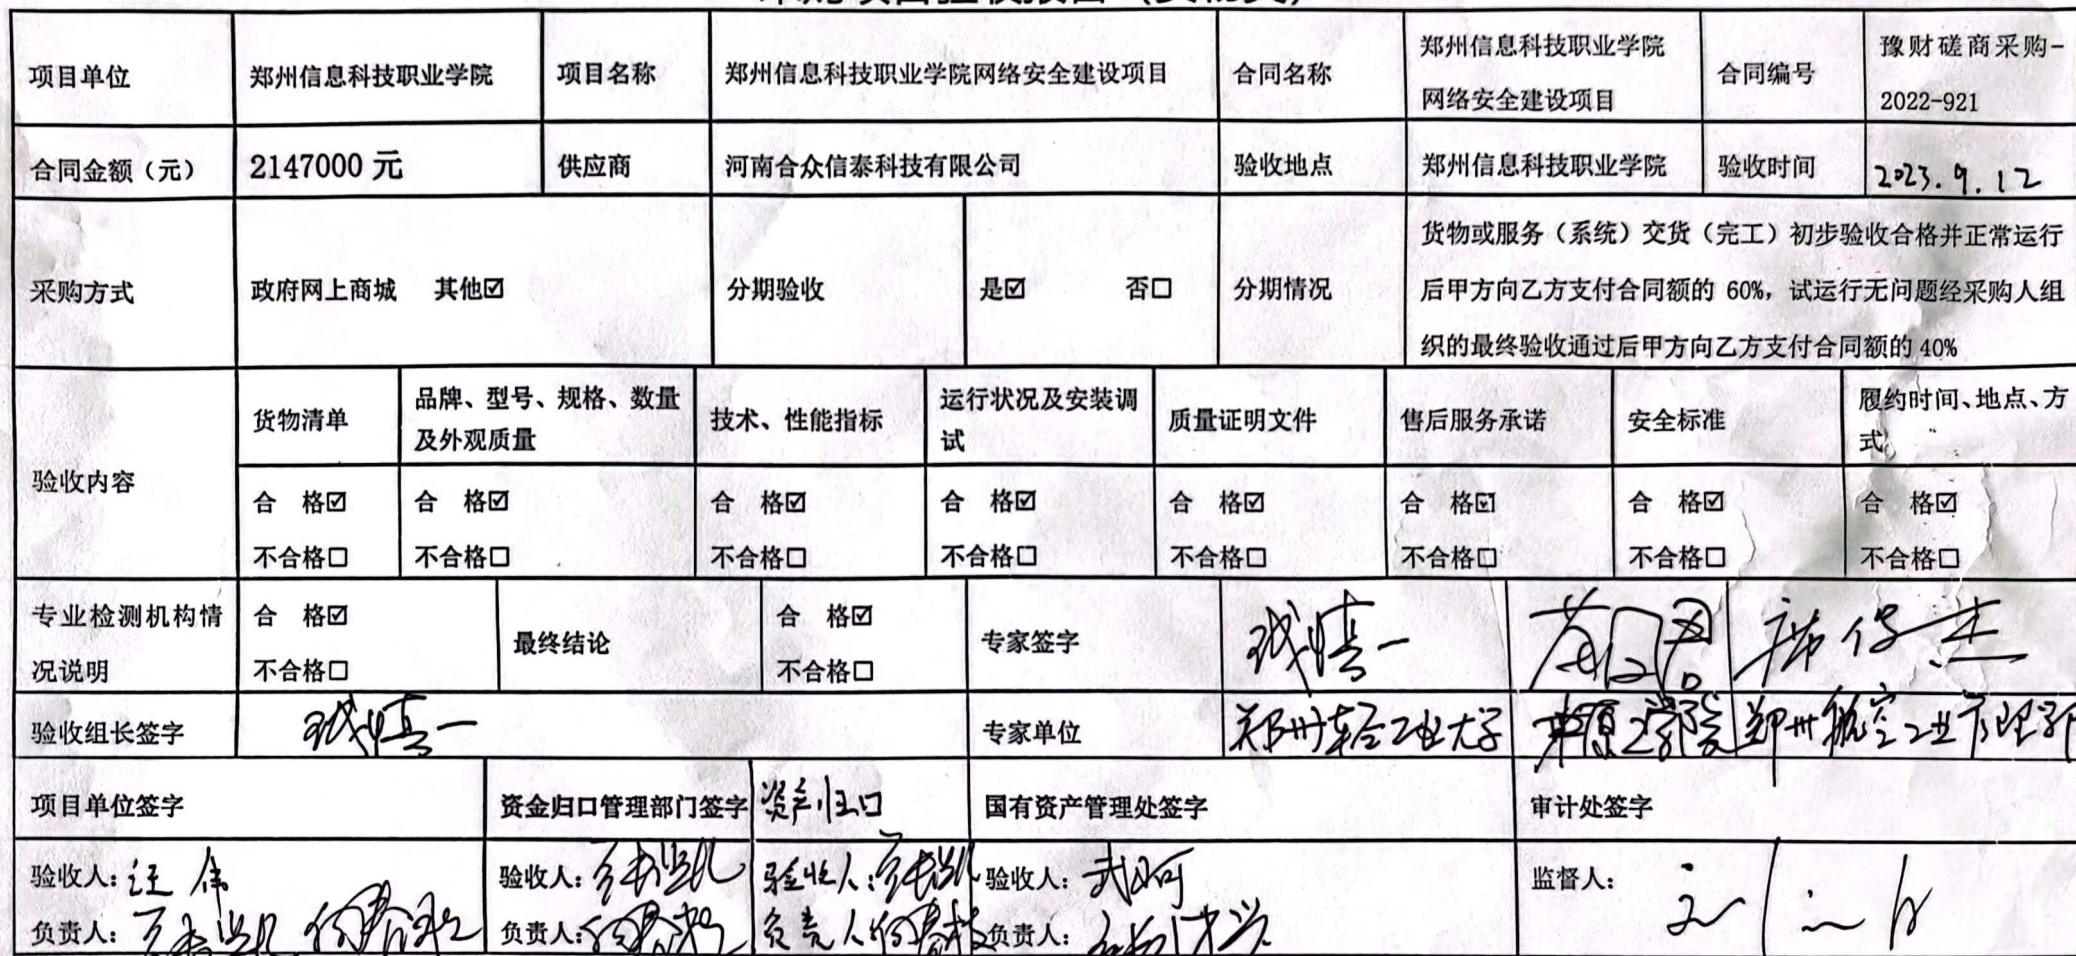 项目单位 郑州信息科技职业学院 项目名称 郑州信息科技职业学院网络安全建设项目 合同名称 郑州信息科技职业学院 合同编号 豫财磋商采购-
网络安全建设项目 2022-921
合同金额（元） 2147000 元 供应商 河南合众信泰科技有限公司 验收地点 郑州信息科技职业学院 验收时间 2023.9.12
采购方式 政府网上商城 其他☑ 分期验收 是☑ 否☐ 分期情况 货物或服务（系统）交货（完工）初步验收合格并正常运行
后甲方向乙方支付合同额的 60%，试运行无问题经采购人组
织的最终验收通过后甲方向乙方支付合同额的 40%
验收内容 货物清单 品牌、型号、规格、数量 技术、性能指标 运行状况及安装调 质量证明文件 售后服务承诺 安全标准 履约时间、地点、方
及外观质量 试 式
合 格☑ 合 格☑ 合 格☑ 合 格☑ 合 格☑ 合 格☑ 合 格☑ 合 格☑
不合格☐ 不合格☐ 不合格☐ 不合格☐ 不合格☐ 不合格☐ 不合格☐ 不合格☐
专业检测机构情 合 格☑ 最终结论 合 格☑ 专家签字
况说明 不合格☐ 不合格☐
验收组长签字 专家单位 郑州轻工业大学 中原工学院 郑州航空工业管理学院
项目单位签字 资金归口管理部门签字 资产归口 国有资产管理处签字 审计处签字
验收人: 验收人: 验收人: 验收人: 监督人:
负责人: 负责人: 负责人 负责人: